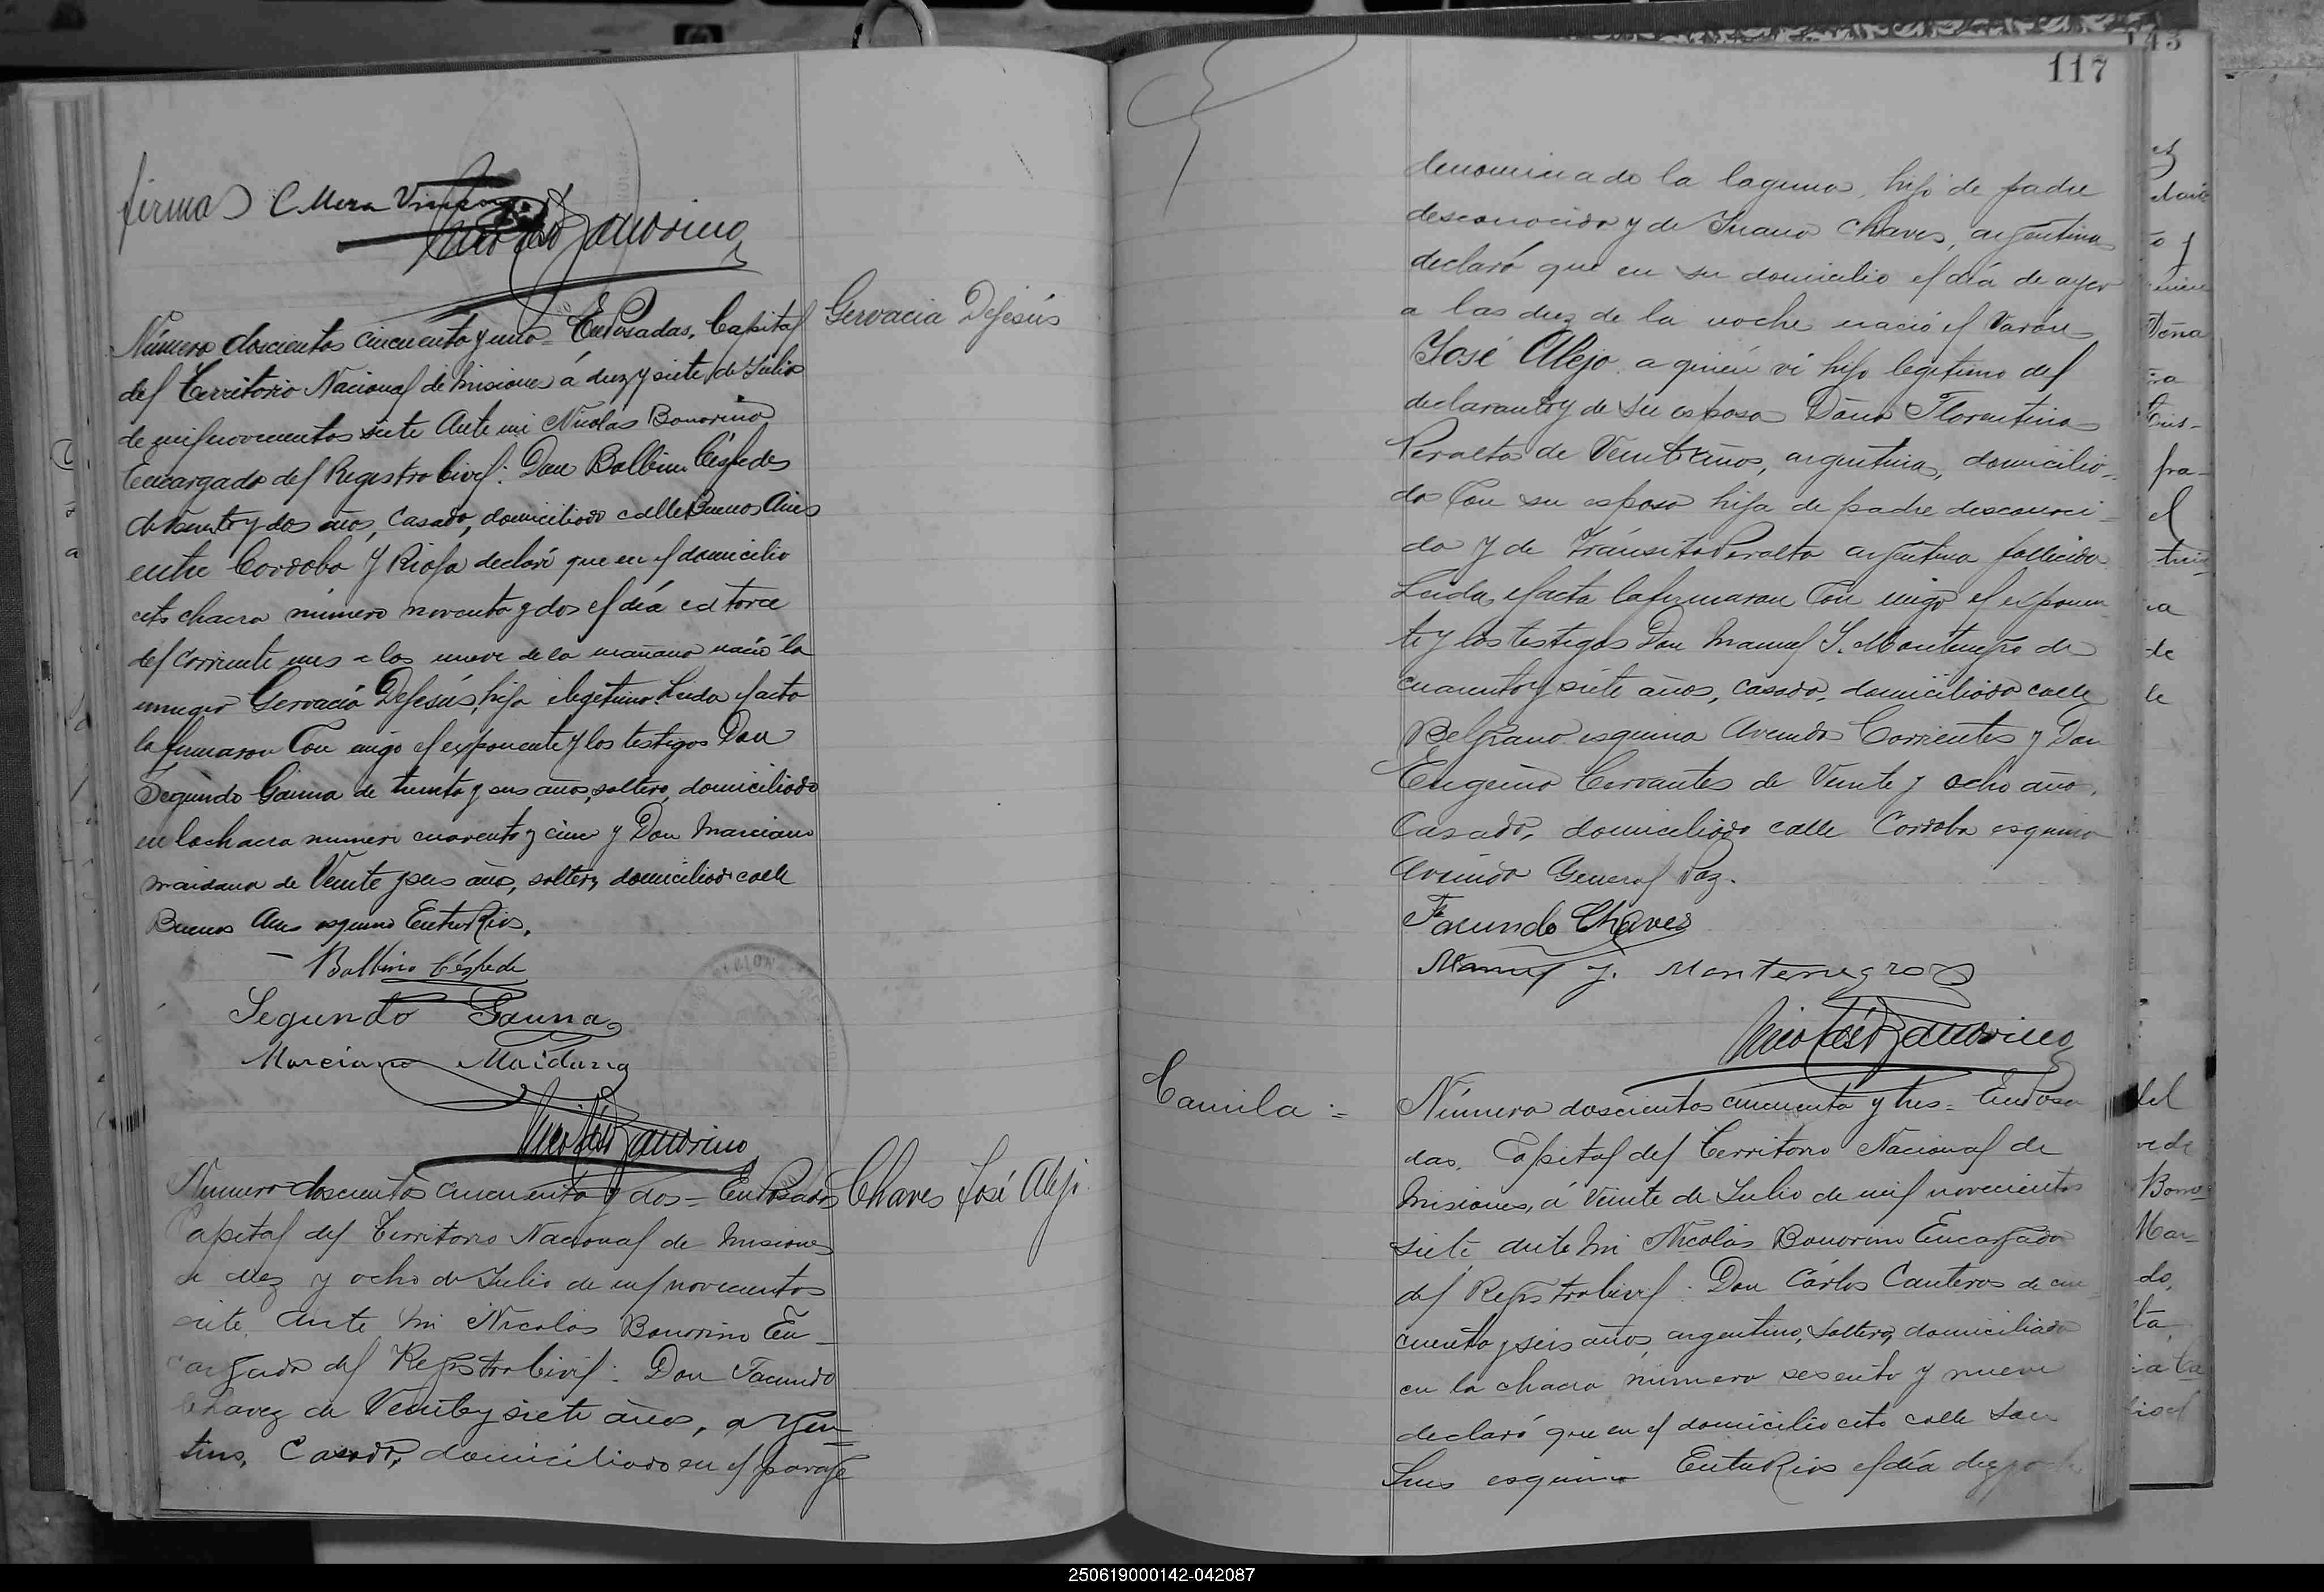 firmas C Mera
Nicolás Bonorino
Número doscientos cincuenta y uno = En Posadas, Capital
Gervacia DeJesús
del Territorio Nacional de Misiones á diez y siete de Julio
de mil novecientos siete Ante mi Nicolás Bonorino
Encargado del Registro Civil: Don Balbino Céspedes
y dos años, casado, domiciliado calle Buenos Aires
entre Cordoba y Rioja declaró que en el domicilio
cito chacra número noventa y dos el día catorce
del corriente mes a las nueve de la mañana nació la
muger Gervacia DeJesús, hija ilegitima. Leida el acta
la firmaron Con migo el exponente y los testigos Don
Segundo Gauna de treinta y seis años, soltero, domiciliado
en la chacra numero cuarenta y cinco y Don Marciano
Maidana de Veinte y seis años, soltero, domiciliado calle
Buenos Aires esquina Entre Rios.
Balbino Céspede
Segundo Gauna
Marciano Maidana
Nicolás Bonorino
Numero doscientos cincuenta y dos = En Posadas
Chaves José Alejo.
Capital del Territorio Nacional de Misiones
a diez y ocho de Julio de mil novecientos
siete. Ante mi Nicolás Bonorino En-
cargado del Registro Civil: Don Facundo
Chavez de Veinte y siete años, argen-
tino, Casado, domiciliado en el paraje
117
denominado la laguna, hijo de padre
desconocido y de Juana Chaves, argentina
declaró que en su domicilio el día de ayer
a las diez de la noche nació el Varón
José Alejo a quién vi hijo legitimo del
declarante y de su esposa Doña Florentina
Peralta de Veinte años, argentina, domicilia-
da Con su esposo hija de padre desconoci-
do y de Tránsito Peralta argentina fallecida
Leida el acta la firmaron Con migo el exponen-
te y los testigos Don Manuel J. Montenegro de
cuarenta y siete años, casado, domiciliado calle
Belgrano esquina Avenida Corrientes y Don
Eugenio Cervantes de Veinte y ocho años.
Casado, domiciliado calle Cordoba esquina
Avenida General Paz.
Facundo Chaves
Manuel J. Montenegro
Nicolás Bonorino
Camila :=
Número doscientos cincuenta y tres = En Posa-
das, Capital del Territorio Nacional de
Misiones, á Veinte de Julio de mil novecientos
siete, ante mi Nicolás Bonorino Encargado
del Registro Civil: Don Cárlos Canteros de cin-
cuenta y seis años, argentino, Soltero, domiciliado
en la chacra número sesenta y nueve
declaró que en el domicilio cito calle San
Luis esquina Entre Rios el día diez
250619000142-042087